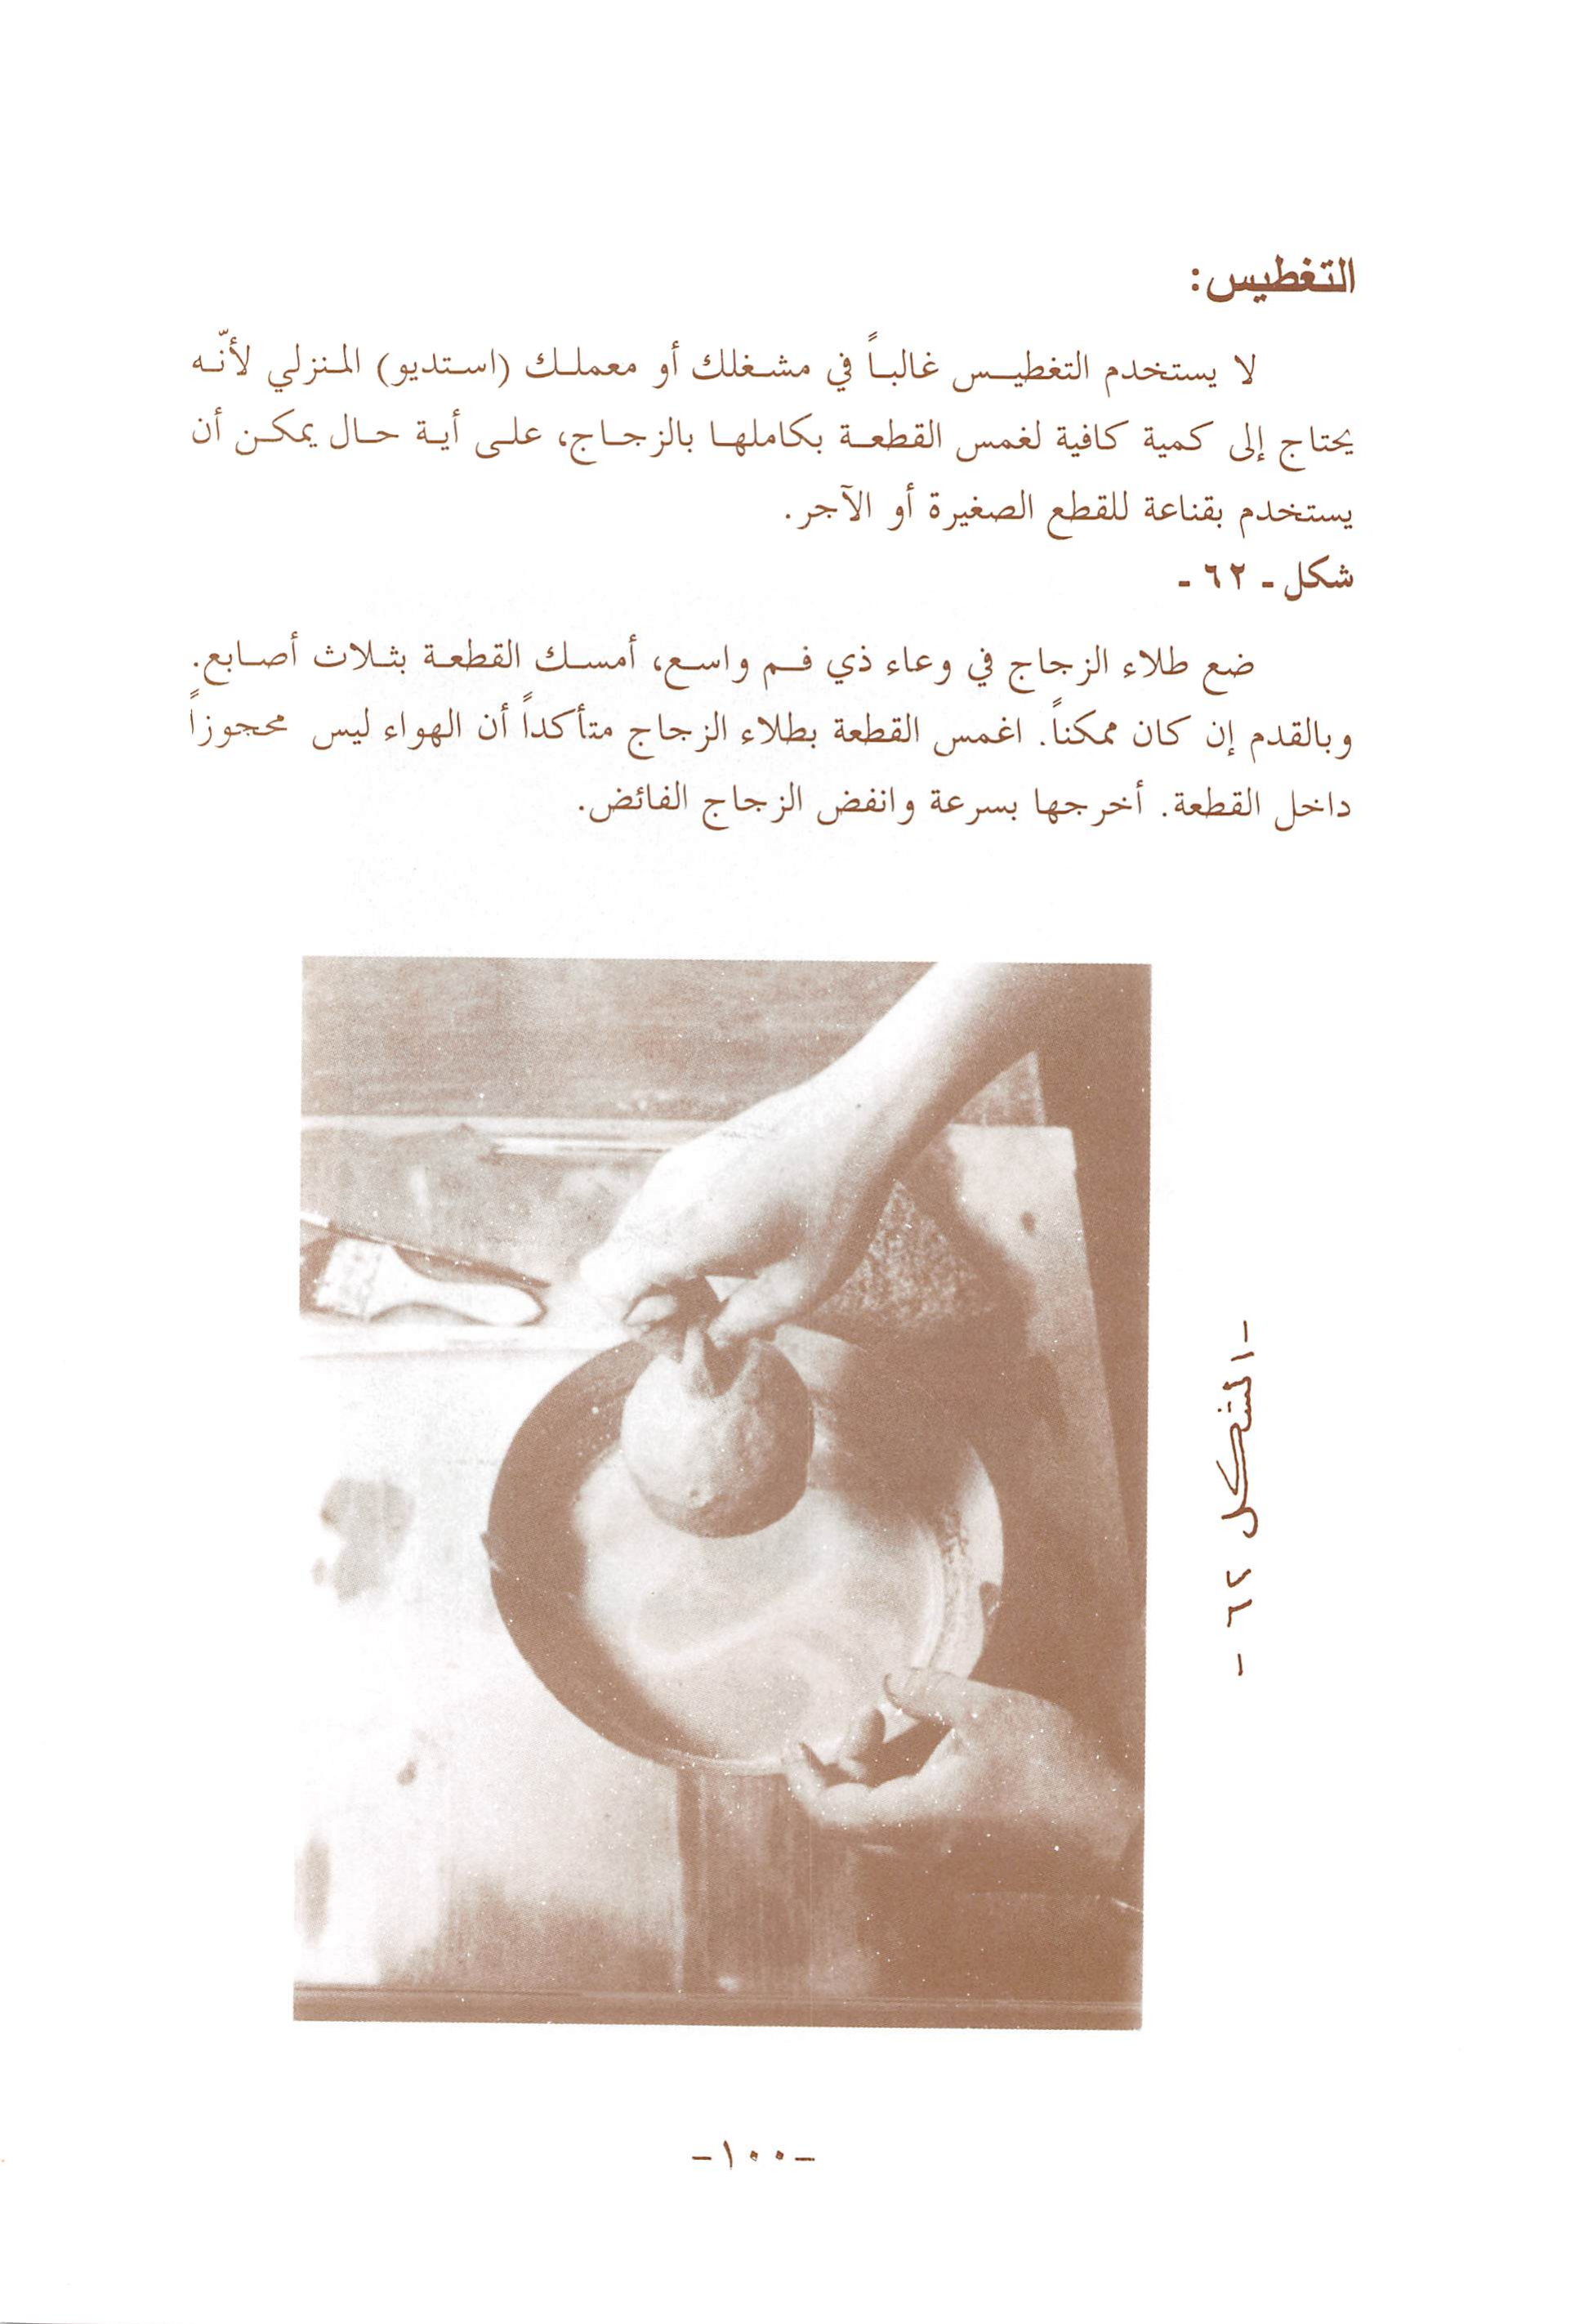 التغطيس:
لا يستخدم التغطيس غالباً في مشغلك أو معملك (استديو) المنزلي لأنّه
يحتاج إلى كمية كافية لغمس القطعة بكاملها بالزجاج، على أية حال يمكن أن
يستخدم بقناعة للقطع الصغيرة أو الآجر.
شكل ـ ٦٢ ـ
ضع طلاء الزجاج في وعاء ذي فم واسع، أمسك القطعة بثلاث أصابع.
وبالقدم إن كان ممكناً. اغمس القطعة بطلاء الزجاج متأكداً أن الهواء ليس محجوزاً
داخل القطعة. أخرجها بسرعة وانفض الزجاج الفائض.
- الشكل ٦٢ -
-١٠٠-